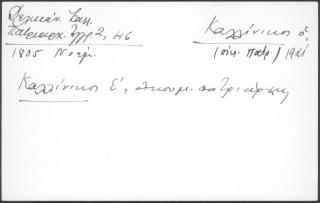 Πατριαρχ. Ἔγγρ 2, 46
1805 Νοέμ.
Καλλίνικος ὁ,
(οἰκ. πατρ.) 1921
Καλλίνικος Ε΄, οἰκουμ. πατριάρχης